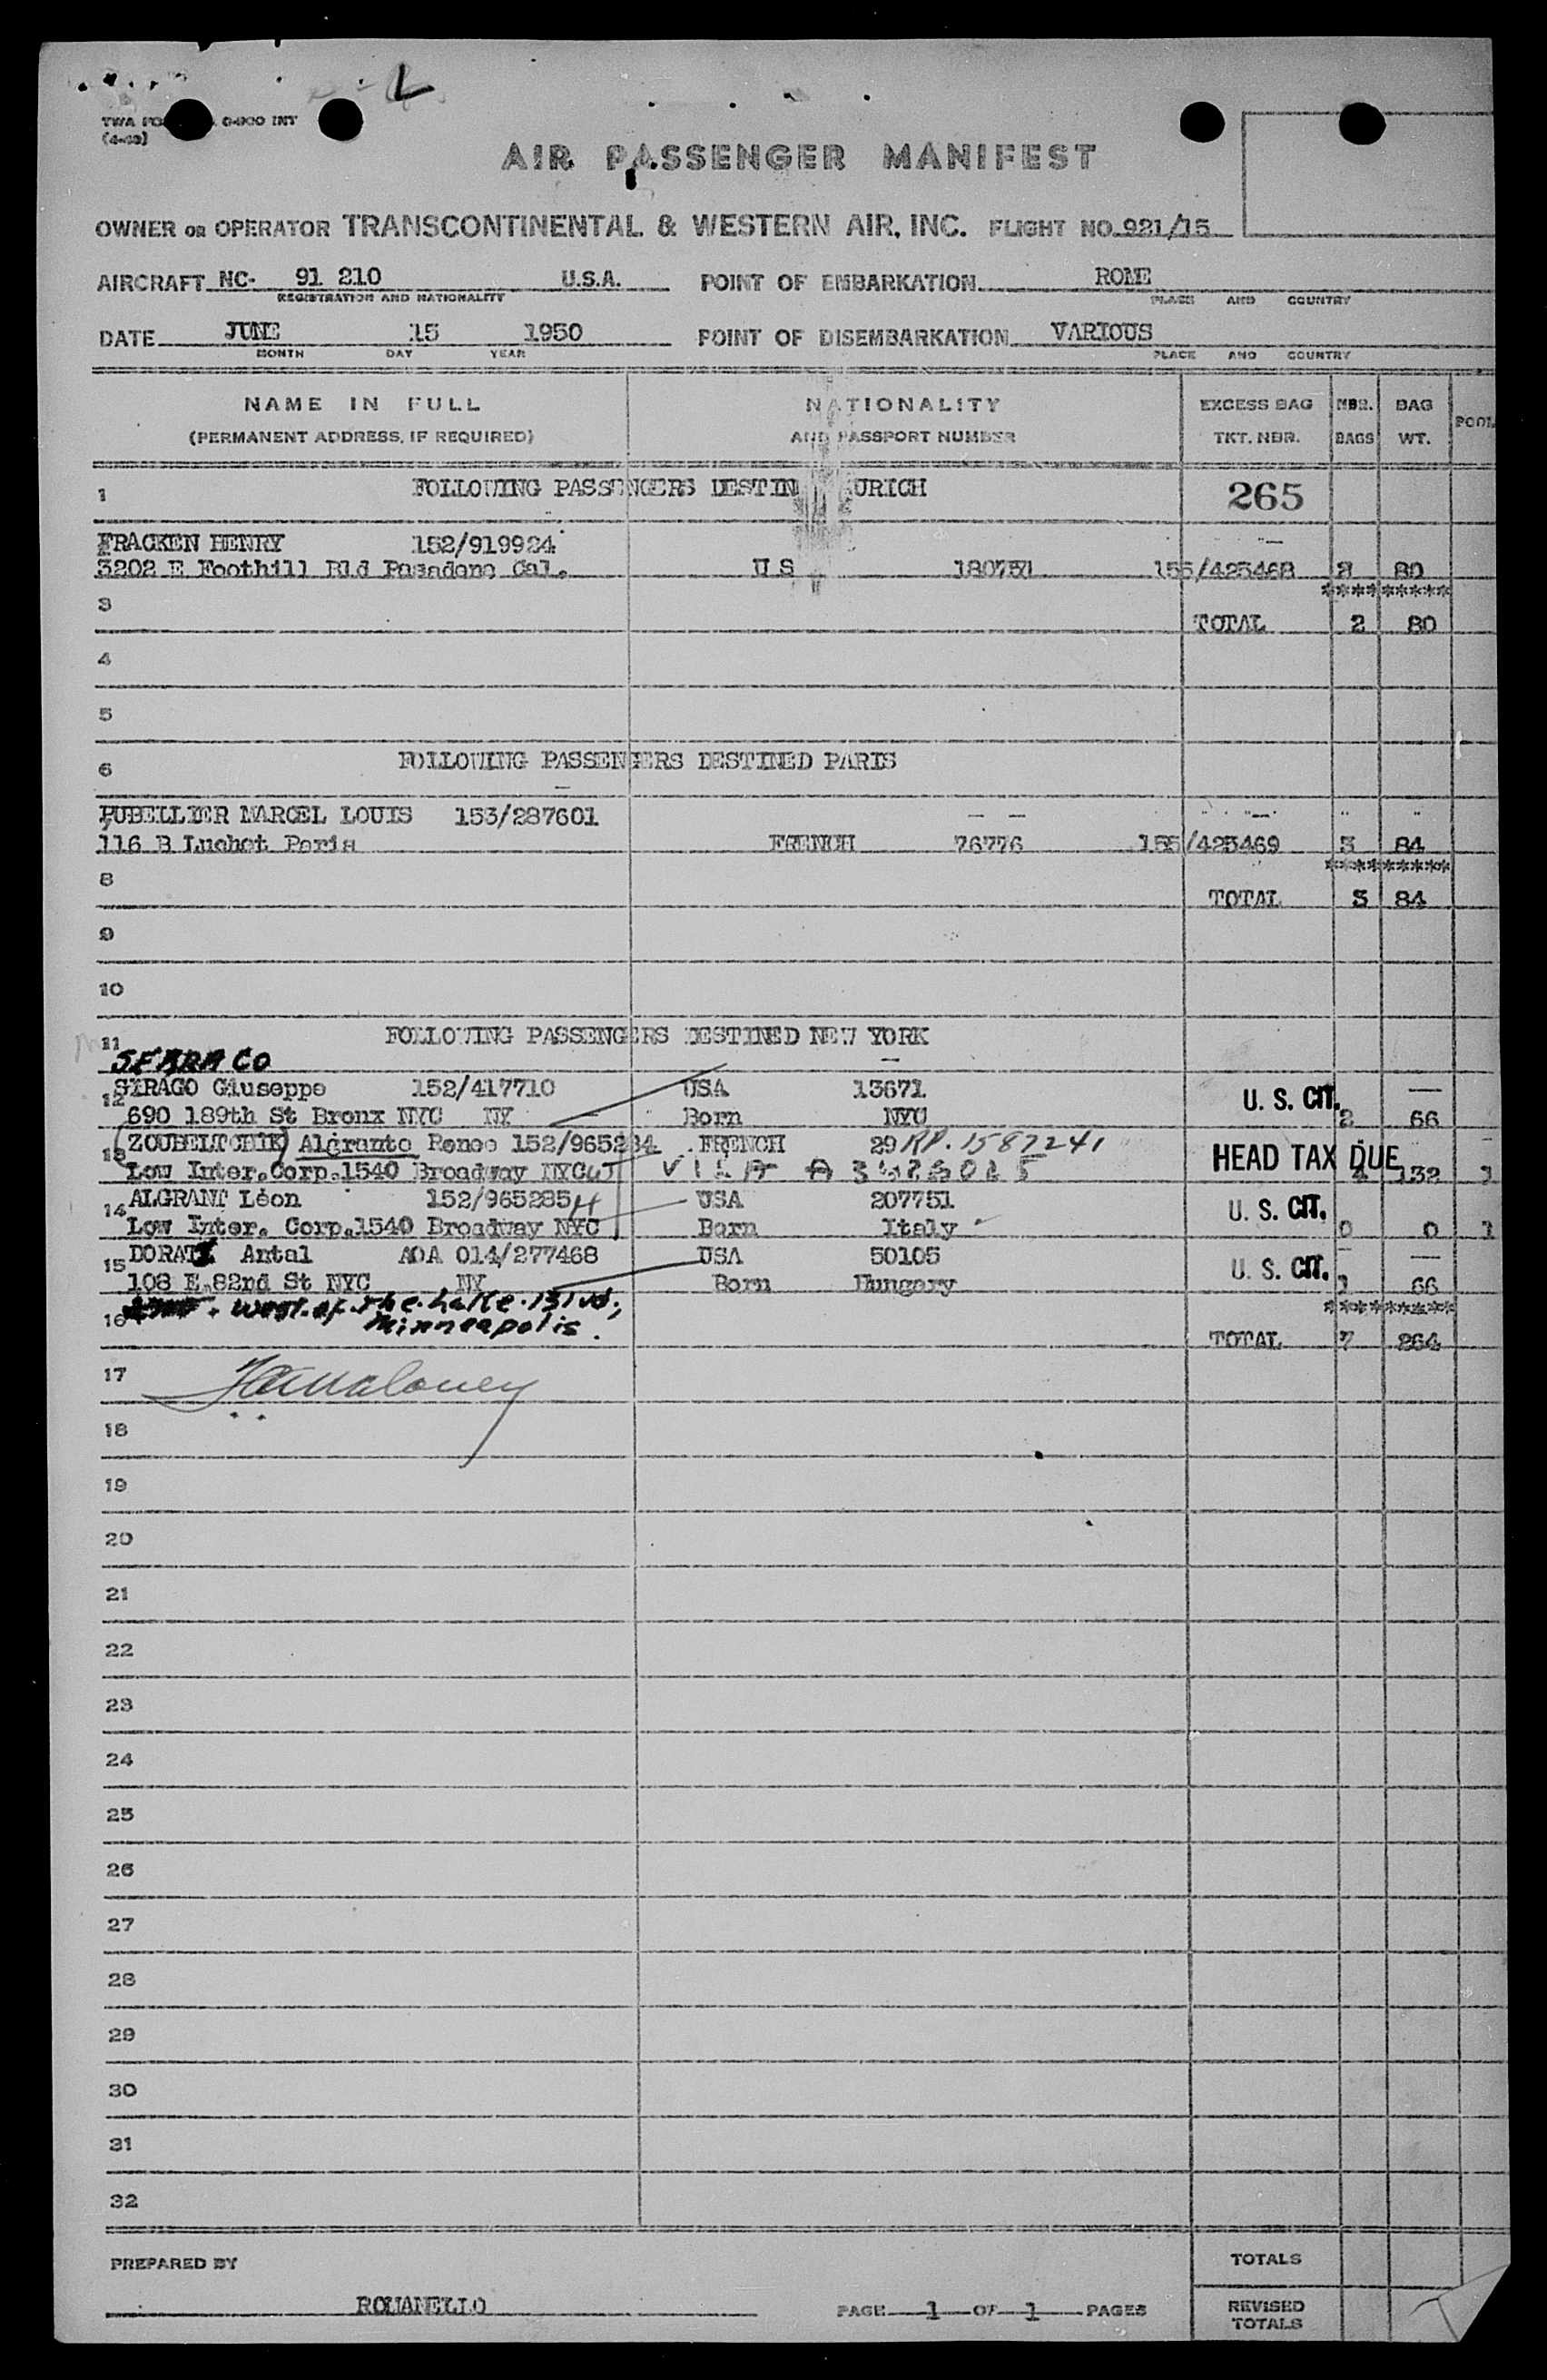 L
TWA FO 0-400 INT
(4-48)
AIR PASSENGER MANIFEST
OWNER OR OPERATOR TRANSCONTINENTAL & WESTERN AIR, INC. FLIGHT NO. 921/15
AIRCRAFT NC- 91 210 U.S.A. POINT OF EMBARKATION ROME
REGISTRATION AND NATIONALITY PLACE AND COUNTRY
DATE JUNE 15 1950 POINT OF DISEMBARKATION VARIOUS
MONTH DAY YEAR PLACE AND COUNTRY
NAME IN FULL NATIONALITY EXCESS BAG NBR. BAG POOL
(PERMANENT ADDRESS, IF REQUIRED) AND PASSPORT NUMBER TKT. NBR. BAGS WT.
1 FOLLOWING PASSENGERS DESTIN URICH 265
FRACKEN HENRY 152/919924
3202 E Foothill Bld Pasadena Cal. U S 180751 155/425468 2 80
3 *********
TOTAL 2 80
4
5
6 FOLLOWING PASSENGERS DESTINED PARIS
PUBELLIER MARCEL LOUIS 153/287601
116 B Luchot Paris FRENCH 76776 155/425469 3 84
8 *********
TOTAL 3 84
9
10
11 FOLLOWING PASSENGERS DESTINED NEW YORK
12 SIRAGO Giuseppe 152/417710 USA 13671 U. S. CIT.
690 189th St Bronx NYC NY Born NYC 2 66
13 (ZOUBELTCHIK) Algrante Renee 152/965284 FRENCH 29 RP. 1587241 HEAD TAX DUE
Low Inter. Corp. 1540 Broadway NYC VISA 4 132 1
14 ALGRANT Léon 152/965285 USA 207751 U. S. CIT.
Low Inter. Corp. 1540 Broadway NYC Born Italy 0 0 1
15 DORATI Antal AOA 014/277468 USA 50105 U. S. CIT.
108 E. 82nd St NYC NY Born Hungary 1 66
16 West of the Lake Blvd, *********
Minneapolis. TOTAL 7 264
17 Maloney
18
19
20
21
22
23
24
25
26
27
28
29
30
31
32
PREPARED BY TOTALS
ROMANELLO PAGE 1 OF 1 PAGES REVISED
TOTALS